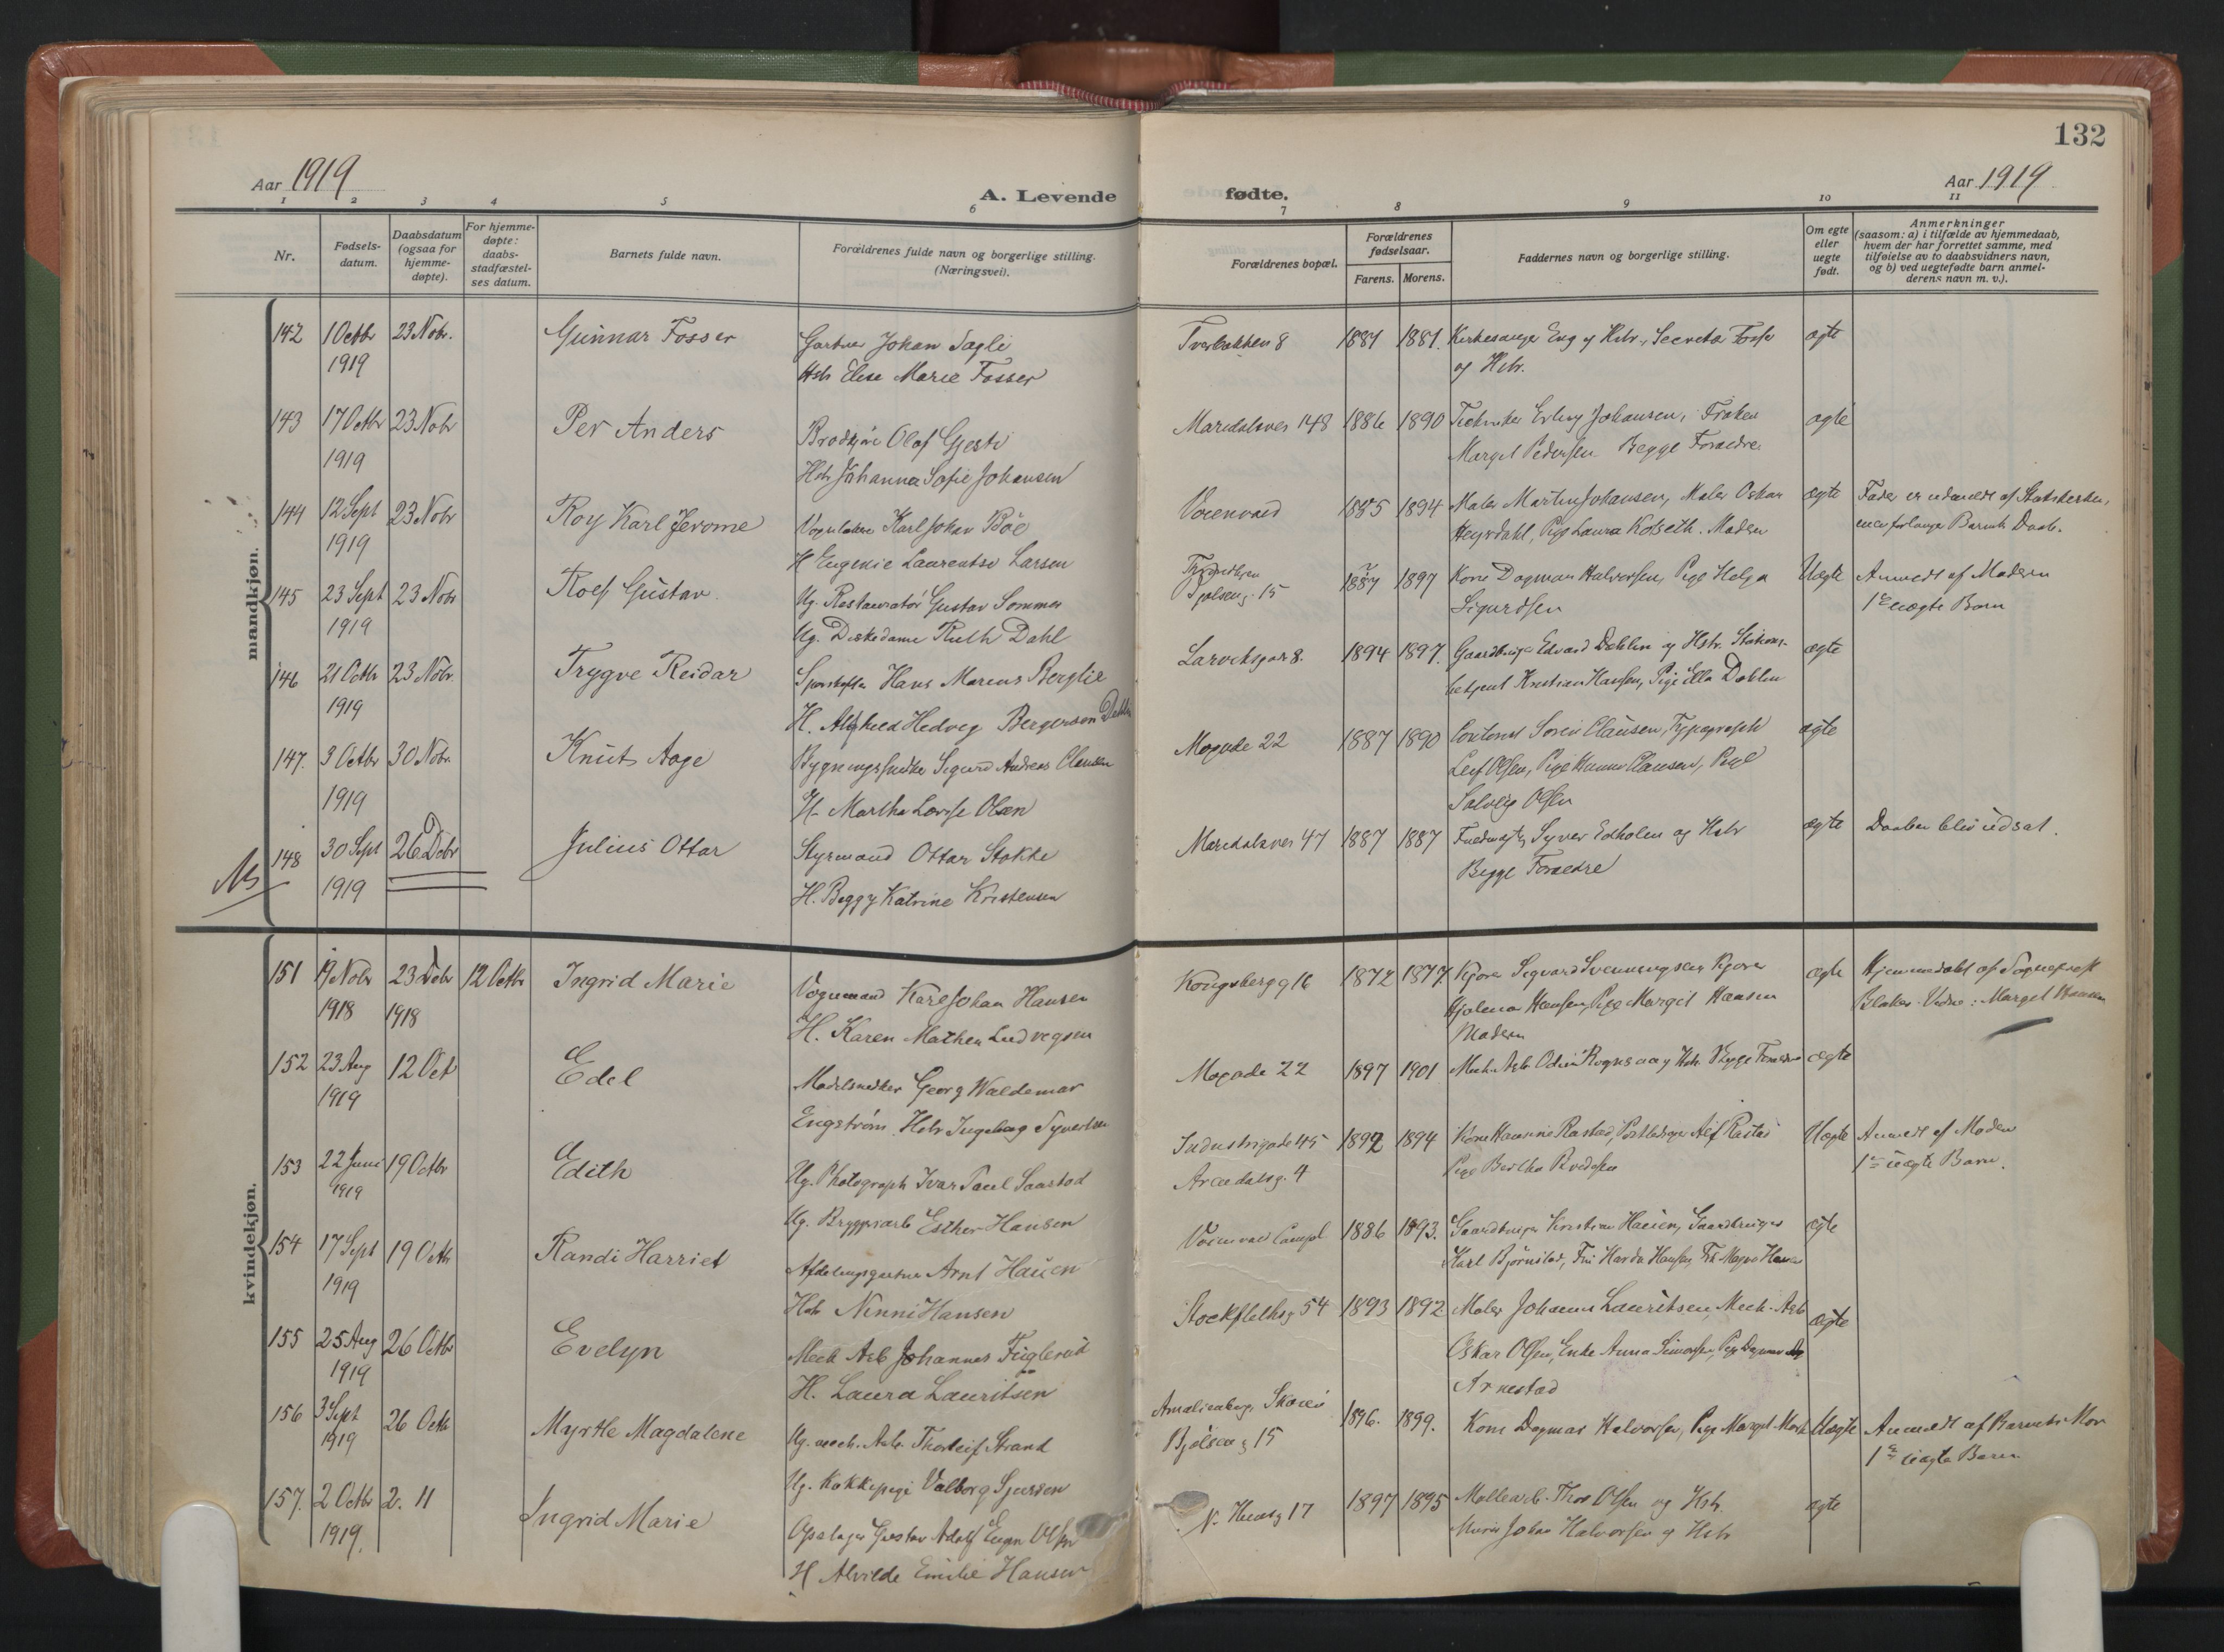 132
Aar 1919
Aar 1919
A. Levende
fødte.
1 2 3 4 5 6
7 8 9 10 11
Nr.
Fødsels-
datum.
Daabsdatum
(ogsaa for
hjemme-
døpte).
For hjemme-
døpte:
daabs-
stadfæstel-
ses datum.
Barnets fulde navn.
Forældrenes fulde navn og borgerlige stilling.
(Næringsvei).
Forældrenes bopæl.
Forældrenes
fødselsaar.
Farens. Morens.
Faddernes navn og borgerlige stilling.
Om egte
eller
uegte
født.
Anmerkninger
(saasom: a) i tilfælde av hjemmedaab,
hvem der har forrettet samme, med
tilføielse av to daabsvidners navn,
og b) ved uegtefødte barn anmel-
derens navn m. v.).
mandkjøn.
142 1 Octbr 23 Nobr. Gunnar Fosser Gartner Johan Sagli
1919 Hstr Elise Marie Fosser
Tverbakken 8 1881 1881. Kirkesanger Eng og Hstr., Fosser ægte
og Hstr.
143 17 Octbr 23 Nobr Per Anders Olaf Gjesti
1919 Hstr Johanna Sofie Johansen
Maridalsvei 148 1886 1890 Erling Johansen, Frøken ægte
Margit Pedersen Begge Forældre
144 12 Sept 23 Nobr Roy Karl Jerome Karl Johan Böe
1919 H Eugenie Laurentse Larsen
Voienvold 1885 1894 Maler Martin Johansen, Maler Oskar ægte Fader er udmeldt af Statskirken,
Heyerdahl, Pige Laura Kolseth. Moderen Barnets Daab.
145 23 Sept 23 Nobr Rolf Gustav Ug. Restauratör Gustav Sommer
1919 Ug. Diskedame Ruth Dahl
15 1887 1897 Kone Dagmar Halvorsen, Pige Helga Uægte Anmeldt af Moderen
Sigurdsen 1ste uægte Barn
146 21 Octbr 23 Nobr. Trygve Reidar Hans Marius Berglie
1919 H. Hedvig Bergersen Dahlin
Larviksgad 8. 1894 1897. Gaardbruger Edvard Dahlin og Hstr. ægte
Kristian Hansen, Pige Ella Dahlin
147. 3 Octbr 30 Nobr. Knut Aage Bygningssnedker Sigurd Andreas Clausen
1919 H. Martha Lovise Olsen
Mogade 22 1887 1890 Sören Clausen, Typograph ægte
Leif Olsen, Pige Clausen, Pige
Solveig Olsen
148 30 Sept 26. Debr Julius Ottar Styrmand Ottar Stokke
1919 H. Beggy Katrine Kristensen
Maridalsvei 47 1887 1887 Syver Edholm og Hstr ægte Daaben blev udsat.
Begge Forældre
kvindekjøn.
151 19 Nobr 23 Debr 12 Octbr Ingrid Marie Vognmand Karl Johan Hansen
1918 1918 H. Karen Mathea Ludvigsen
Kongsbergg 16 1872 1877. Kjører Sigvard Svenningsen Kjører ægte Hjemmedøbt af Sogneprest
Hjalmar Hansen, Pige Margit Hansen Blakar. Vidne: Margit Hansen
Moderen
152 23 Aug 12 Oct Edel Modelsnedker Georg Waldemar
1919 Engström Hstr Ingeborg Syvertsen
Mogade 22 1897 1901 Mech. Arb. Odin og Hstr. Begge Forældre ægte
153 22 Juni 19 Octbr Edith Ug. Photograph Ivar Paul Saastad
1919 Ug. Bryggeriarb Esther Hansen
Industrigade 45 1892 1894 Kone Rastad, Alf Rastad Uægte Anmeldt af Moderen
Arendalsg. 4 Pige Bertha 1ste uægte Barn.
154 17 Sept 19 Octbr Randi Harriet Afdelingsgartner Arnt Hauen
1919 Hstr Ninni Hansen
1886 1893. Gaardbruger Kristian Hauen, Gaardbruger ægte
Karl Björnstad, Hansen
155 25 Aug 26 Octbr Evelyn Mech Arb Johannes Fuglerud
1919 H. Laura Lauritsen
Stockflethsg 54 1893 1892 Maler Johannes Lauritsen, Mech. Arb ægte
Oskar Olsen, Enke Anna Simonsen, Pige Dagmar
Arnestad
156 3 Sept 26 Octbr Myrtle Magdalene Ug. mech. Arb. Thorleif Strand
1919 Ug. Kokkepige Valborg Sjursen
1896. 1899. Kone Dagmar Halvorsen, Pige Margit Uægte Anmeldt af Barnets Mor
Bjölseng 15 1ste uægte Barn
157. 2 Octbr 2. 11 Ingrid Marie Opslager Gustav Adolf Eugen Olsen
1919. H Alvilde Emilie Hansen
17 1897 1895 Thor Olsen og Hstr ægte
Murer Johan Halvorsen og Hstr